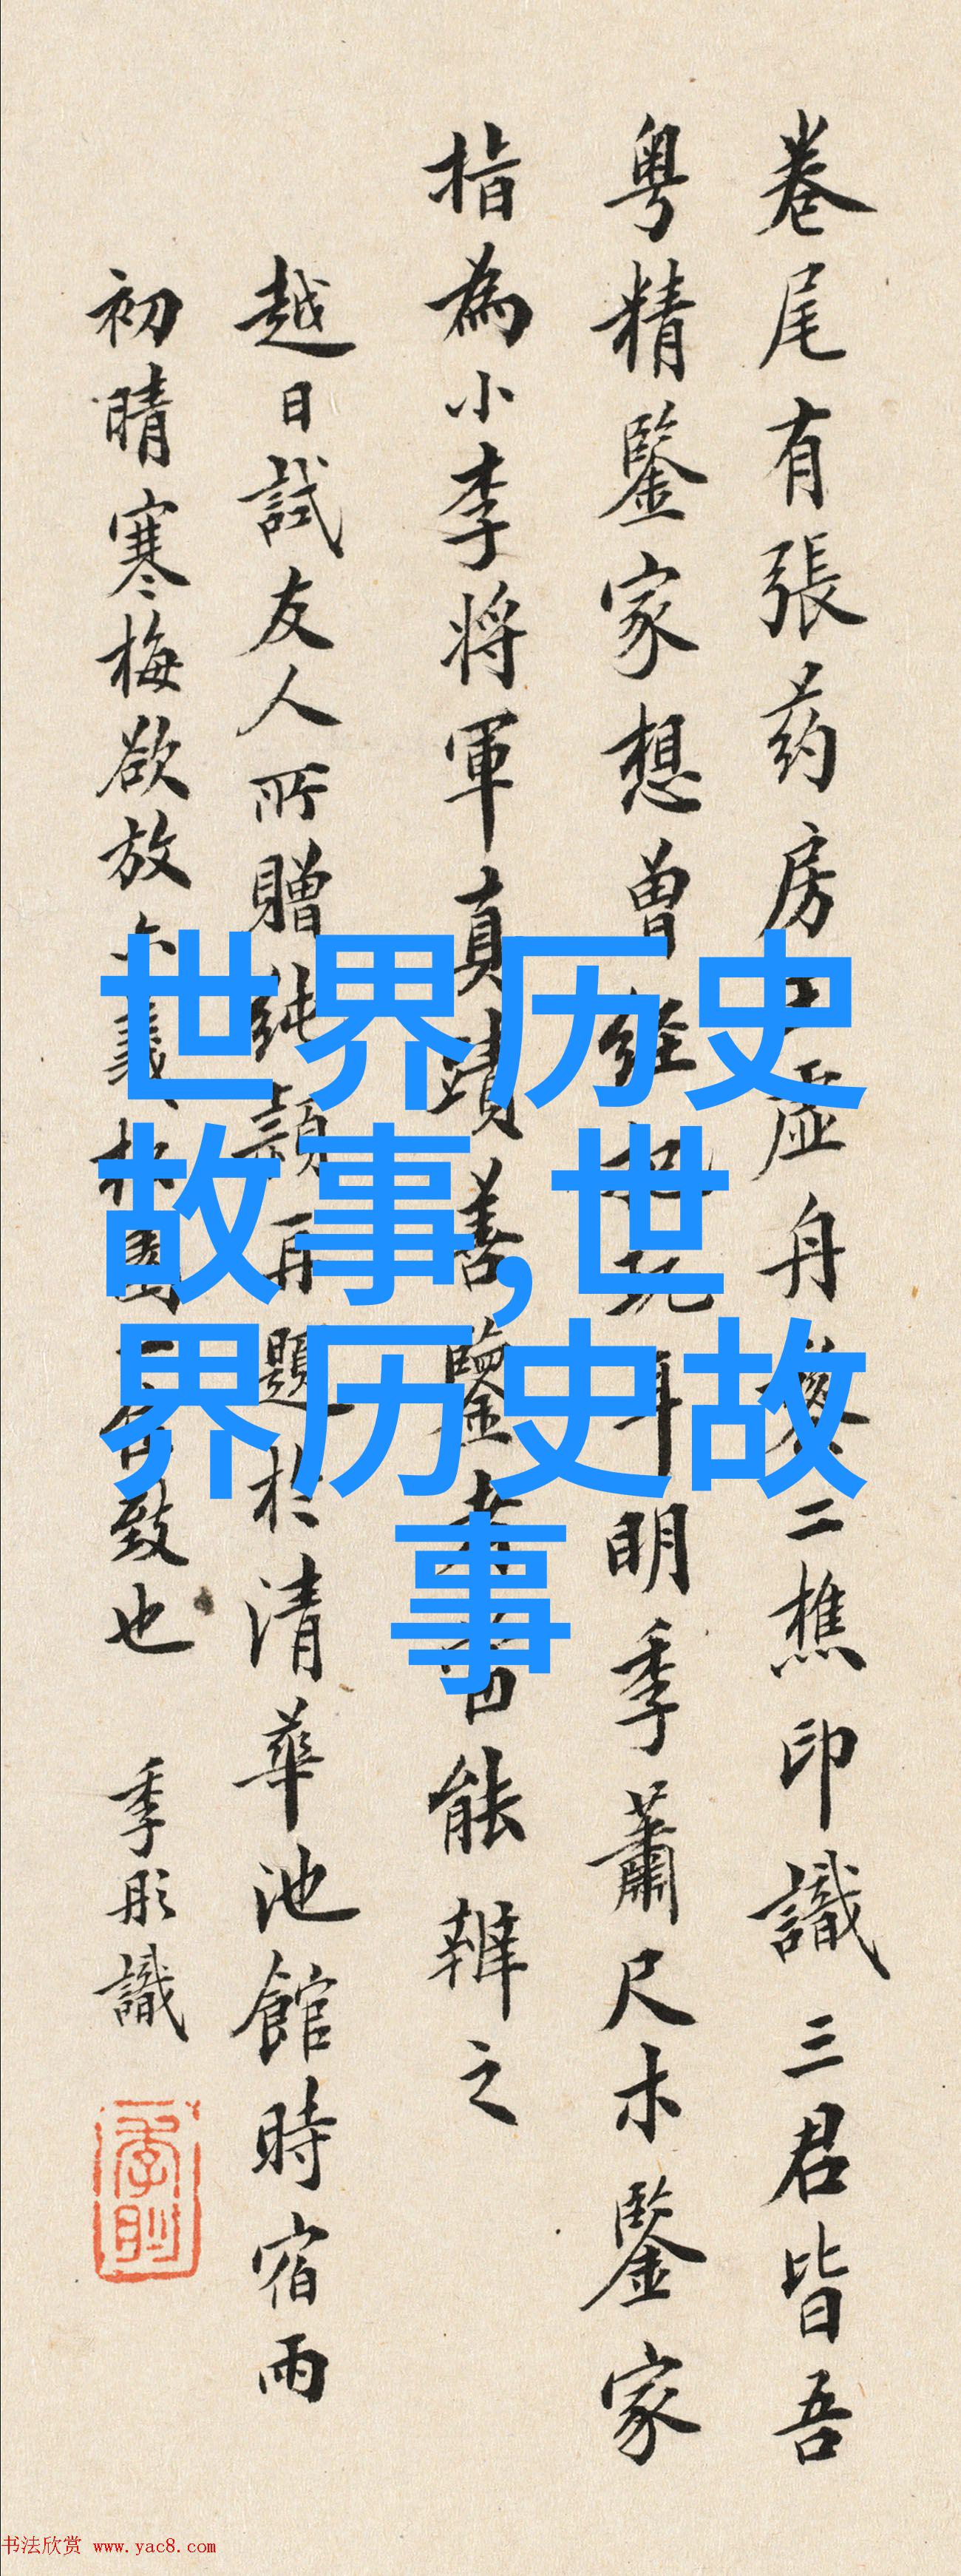 卷尾有張药房虛舟黎二樵印識三君皆吾
粤精鑒家想曾經把玩耳明季蕭尺木鑒家
指為小李将軍真蹟善鑒者當能辨之
越日試友人所贈純穎再題於清華池館時宿雨
初晴寒梅欲放致也 季彤識
世界历史
故事,世
界历史故
事
书法欣赏 www.yac8.com